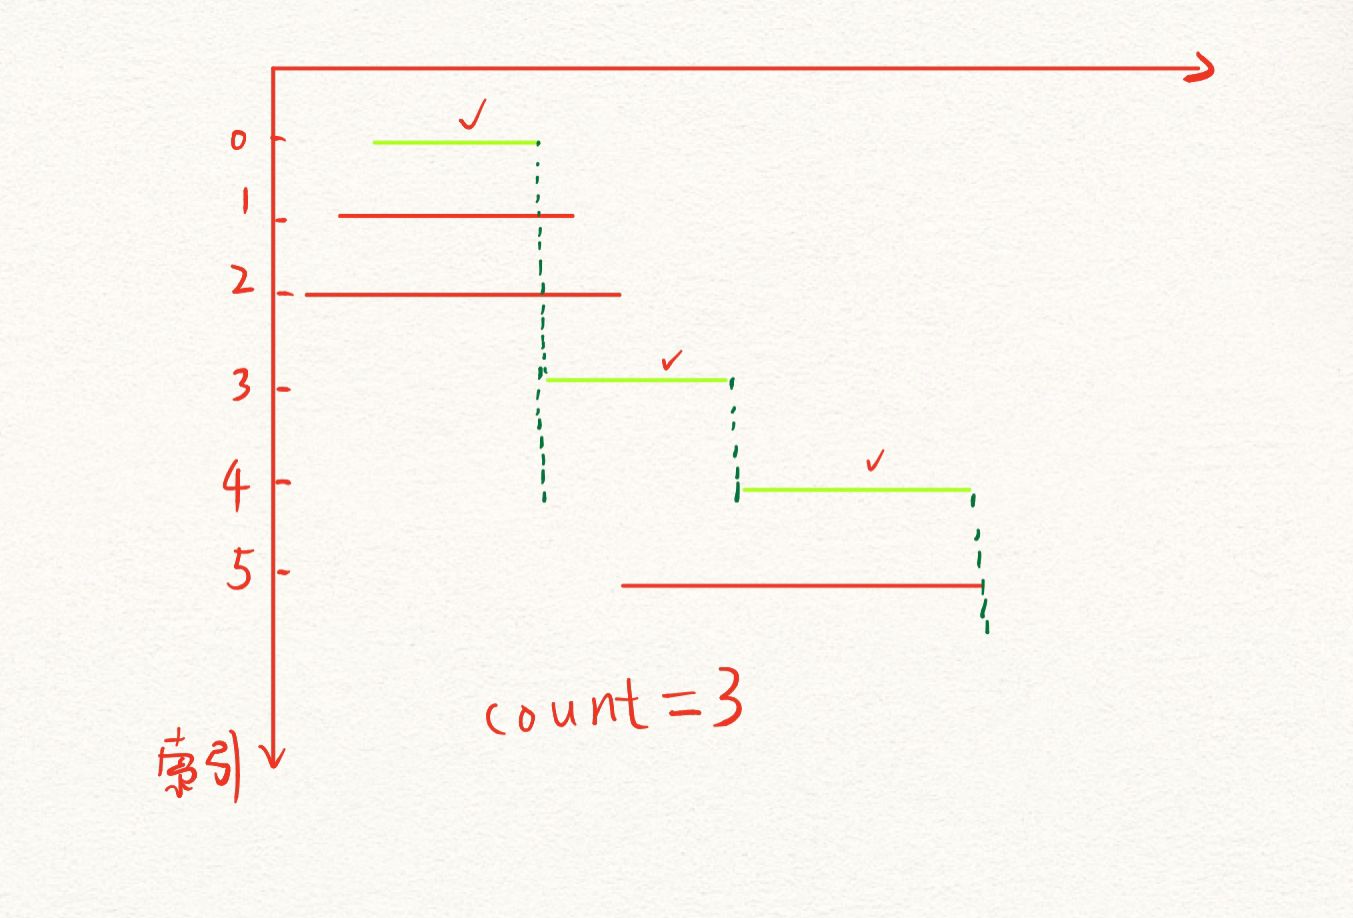 0
1
2
3
4
5
count=3
索引